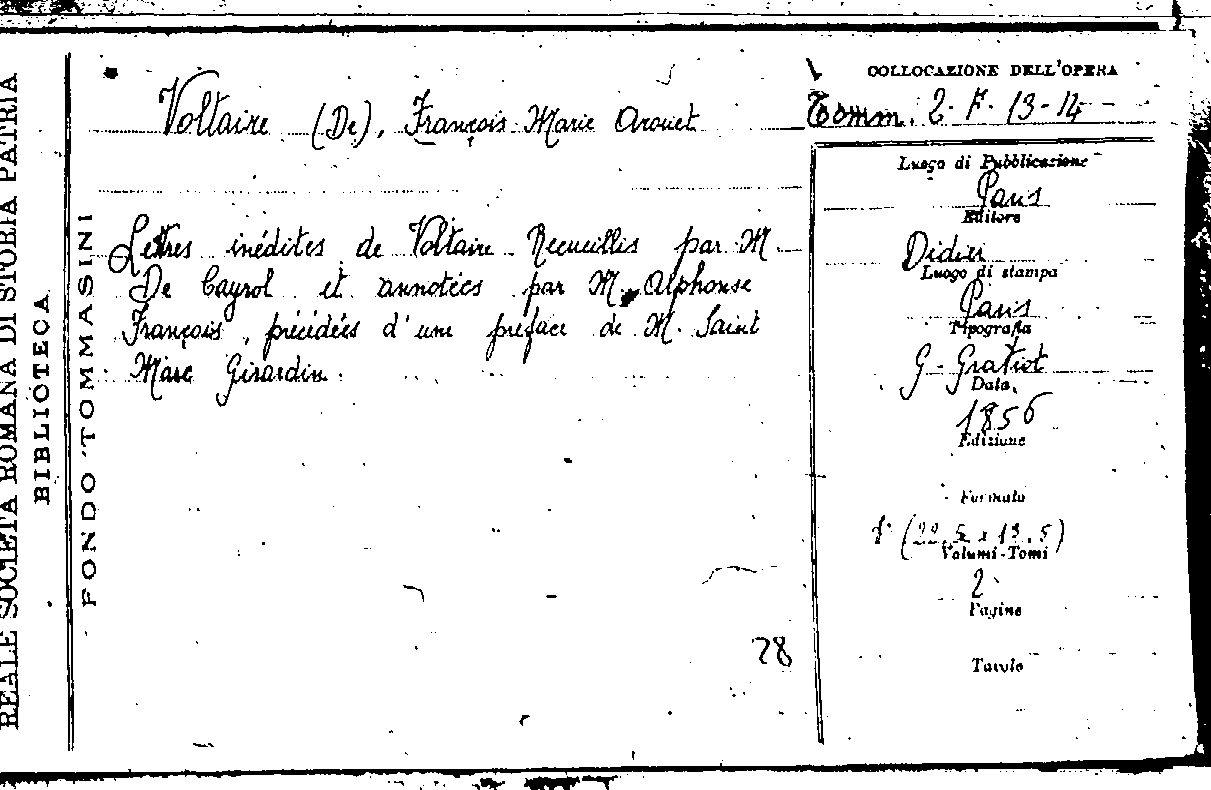 REALE SOCIETÀ ROMANA DI STORIA PATRIA
BIBLIOTECA
FONDO TOMMASINI
Voltaire (De), François Marie Arouet
Lettres inédites de Voltaire Recueillis par M
De Cayrol et annotées par M. Alphonse
François, précédées d'une préface de M. Saint
Marc Girardin.
28
COLLOCAZIONE DELL'OPERA
Tomm. 2. F. 13-14
Luogo di Pubblicazione
Paris
Editore
Didier
Luogo di stampa
Paris
Tipografia
G. Gratiot
Data
1856
Edizione
Formato
8° (22,5 x 13,5)
Volumi-Tomi
2
Pagine
Tavole